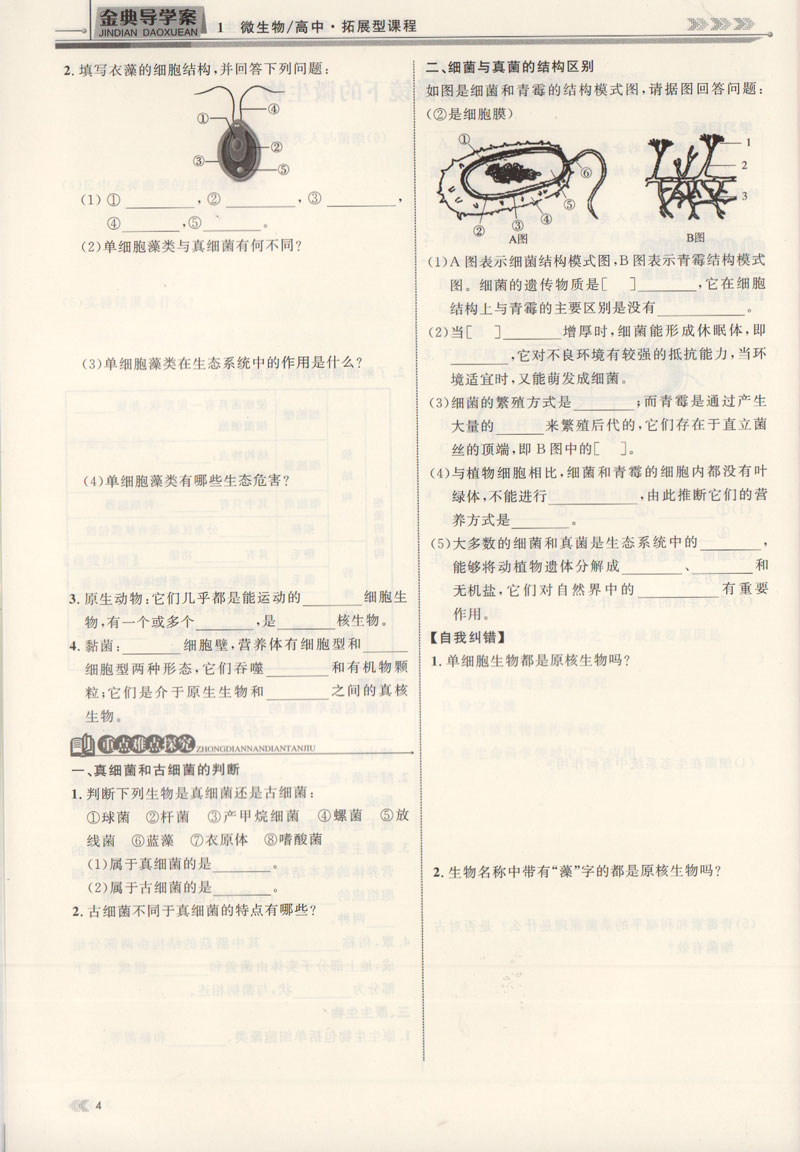 金典导学案
JINDIAN DAOXUEAN
1 微生物/高中·拓展型课程
2. 填写衣藻的细胞结构,并回答下列问题:
① ④
② ③ ⑤
(1) ①________,②________,③________,
④________,⑤________。
(2)单细胞藻类与真细菌有何不同?
(3)单细胞藻类在生态系统中的作用是什么?
(4)单细胞藻类有哪些生态危害?
3. 原生动物:它们几乎都是能运动的________细胞生
物,有一个或多个________,是________核生物。
4. 黏菌:________细胞壁,营养体有细胞型和________
细胞型两种形态,它们吞噬________和有机物颗
粒;它们是介于原生生物和________之间的真核
生物。
重点难点探究 ZHONGDIANNANDIANTANJIU
一、真细菌和古细菌的判断
1. 判断下列生物是真细菌还是古细菌:
①球菌 ②杆菌 ③产甲烷细菌 ④螺菌 ⑤放
线菌 ⑥蓝藻 ⑦衣原体 ⑧嗜酸菌
(1)属于真细菌的是________。
(2)属于古细菌的是________。
2. 古细菌不同于真细菌的特点有哪些?
二、细菌与真菌的结构区别
如图是细菌和青霉的结构模式图,请据图回答问题:
(②是细胞膜)
① ⑥ ② ③ ④ ⑤
1 2 3
A图 B图
(1)A图表示细菌结构模式图,B图表示青霉结构模式
图。细菌的遗传物质是[ ]________,它在细胞
结构上与青霉的主要区别是没有________。
(2)当[ ]________增厚时,细菌能形成休眠体,即
________,它对不良环境有较强的抵抗能力,当环
境适宜时,又能萌发成细菌。
(3)细菌的繁殖方式是________;而青霉是通过产生
大量的________来繁殖后代的,它们存在于直立菌
丝的顶端,即B图中的[ ]。
(4)与植物细胞相比,细菌和青霉的细胞内都没有叶
绿体,不能进行________,由此推断它们的营
养方式是________。
(5)大多数的细菌和真菌是生态系统中的________,
能够将动植物遗体分解成________、________和
无机盐,它们对自然界中的________有重要
作用。
【自我纠错】
1. 单细胞生物都是原核生物吗?
2. 生物名称中带有“藻”字的都是原核生物吗?
4